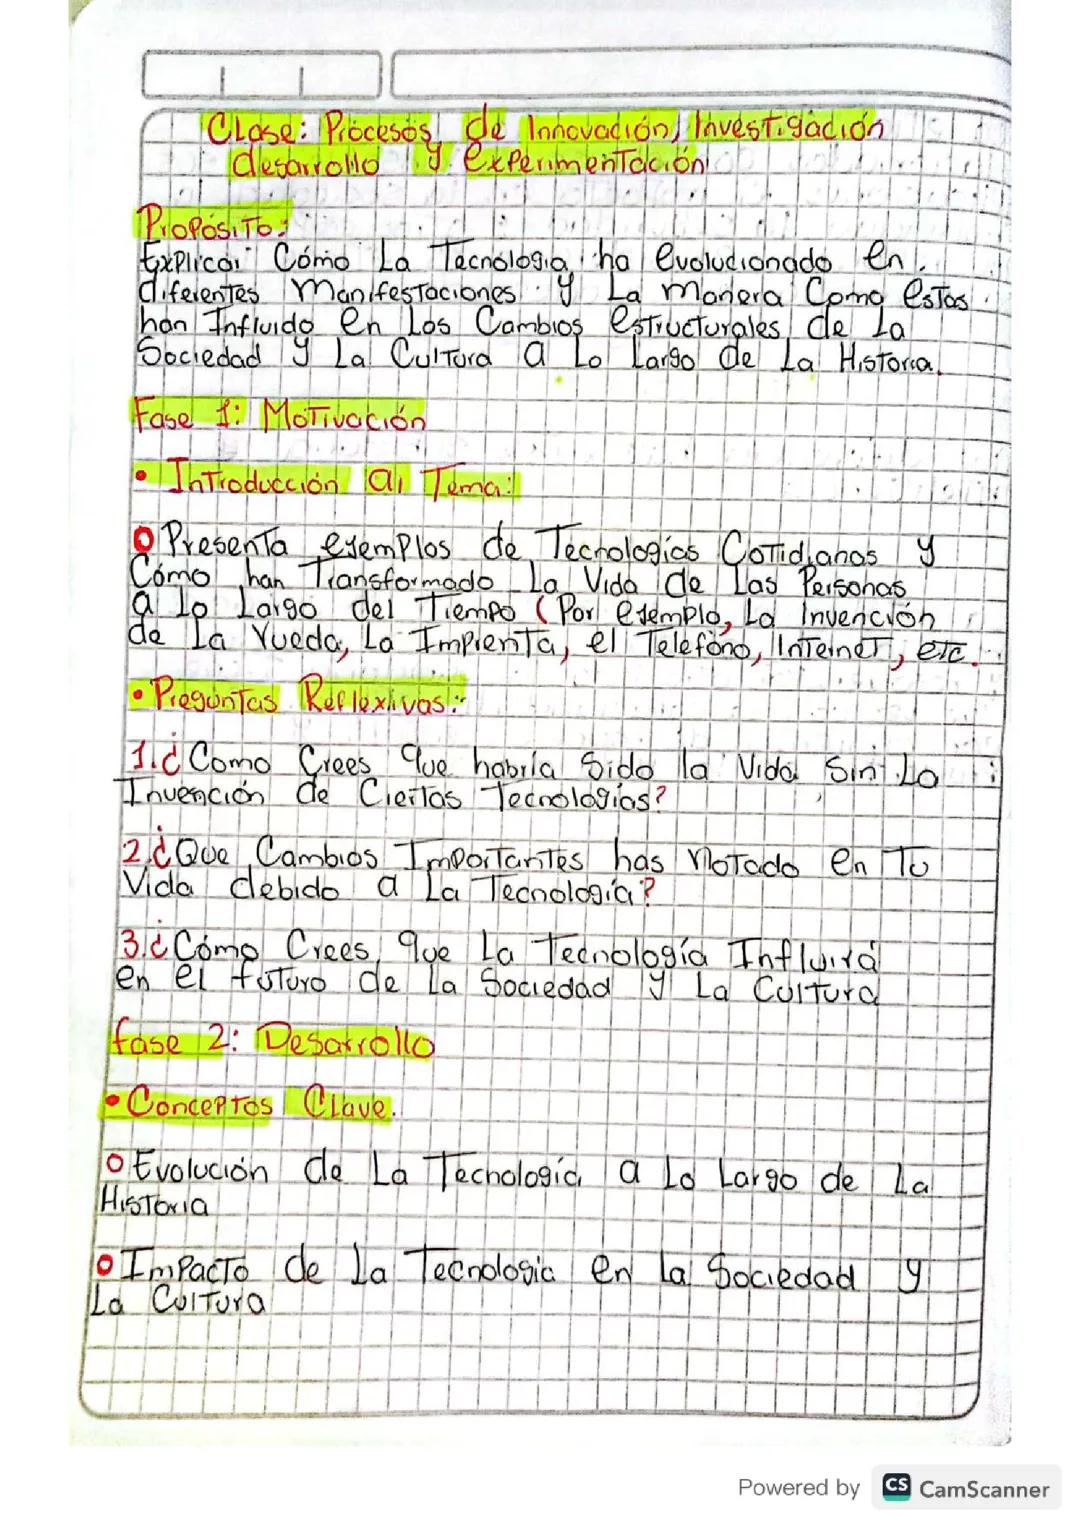 Clase: Procesos de Innovación, Investigación
desarrollo y experimentación
Proposito:
Explicar Cómo La Tecnología ha evolucionado en
diferentes manifestaciones y La manera Como estas
han Influido en Los Cambios estructurales de La
Sociedad y La Cultura a Lo Largo de La Historia.
Fase 1: Motivación
• Introducción al Tema:
o Presenta ejemplos de Tecnologías Cotidianas y
Cómo han Transformado La Vida de Las Personas
a lo Largo del Tiempo (Por ejemplo, La Invención
de La Rueda, La Imprenta, el Teléfono, Internet, etc.
• Preguntas Reflexivas:
1.¿Como Crees que habría Sido la Vida Sin Lo
Invención de Ciertas Tecnologías?
2.¿Que Cambios Importantes has notado en Tu
Vida debido a La Tecnología?
3.¿Cómo Crees que La Tecnología Influirá
en el futuro de La Sociedad y La Cultura
fase 2: Desarrollo
• Conceptos Clave.
o Evolución de La Tecnología a Lo Largo de La
Historia
o Impacto de La Tecnologia en La Sociedad y
La Cultura
Powered by CS CamScanner